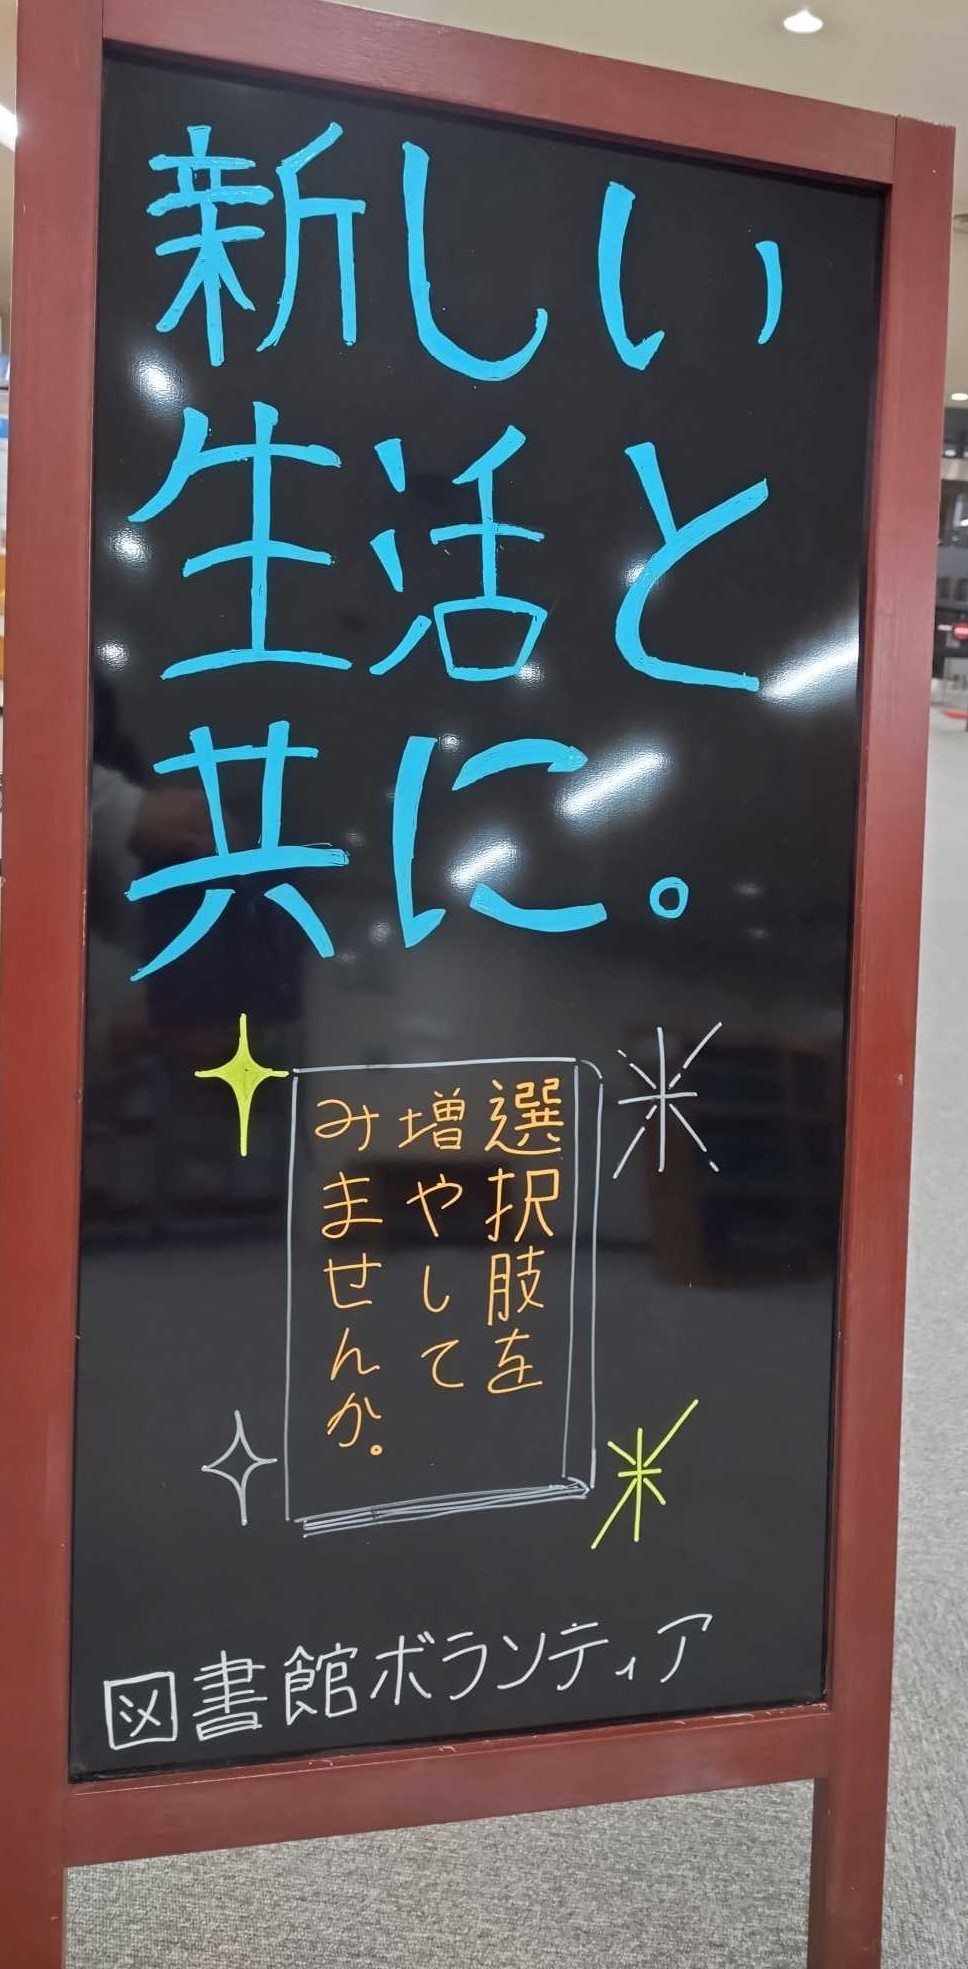 新しい
生活と
共に。
選択肢を
増やして
みませんか。
図書館ボランティア